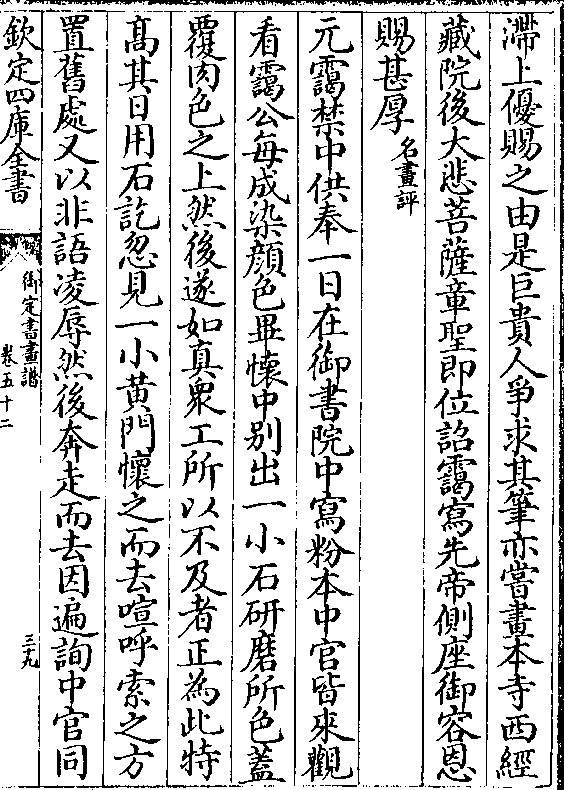 滯上優賜之由是巨貴人爭求其筆亦嘗畫本寺西經
藏院後大悲菩薩章聖即位詔靄寫先帝側座御容恩
賜甚厚名畫評
元靄禁中供奉一日在御書院中寫粉本中官皆來觀
看靄公每成染顔色畢懷中别出一小石研磨所色蓋
覆肉色之上然後遂如真衆工所以不及者正為此特
髙其日用石訖忽見一小黄門懷之而去喧呼索之方
置舊處又以非語凌辱然後奔走而去因遍詢中官同
欽定四庫全書
御定書畫譜
卷五十二
三九